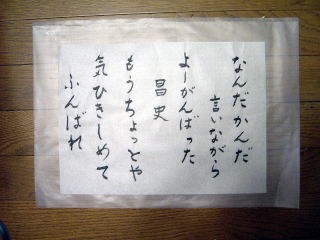 なんだかんだ
言いながら
よーがんばった
昌史
もうちょっとや
気ひきしめて
ふんばれ